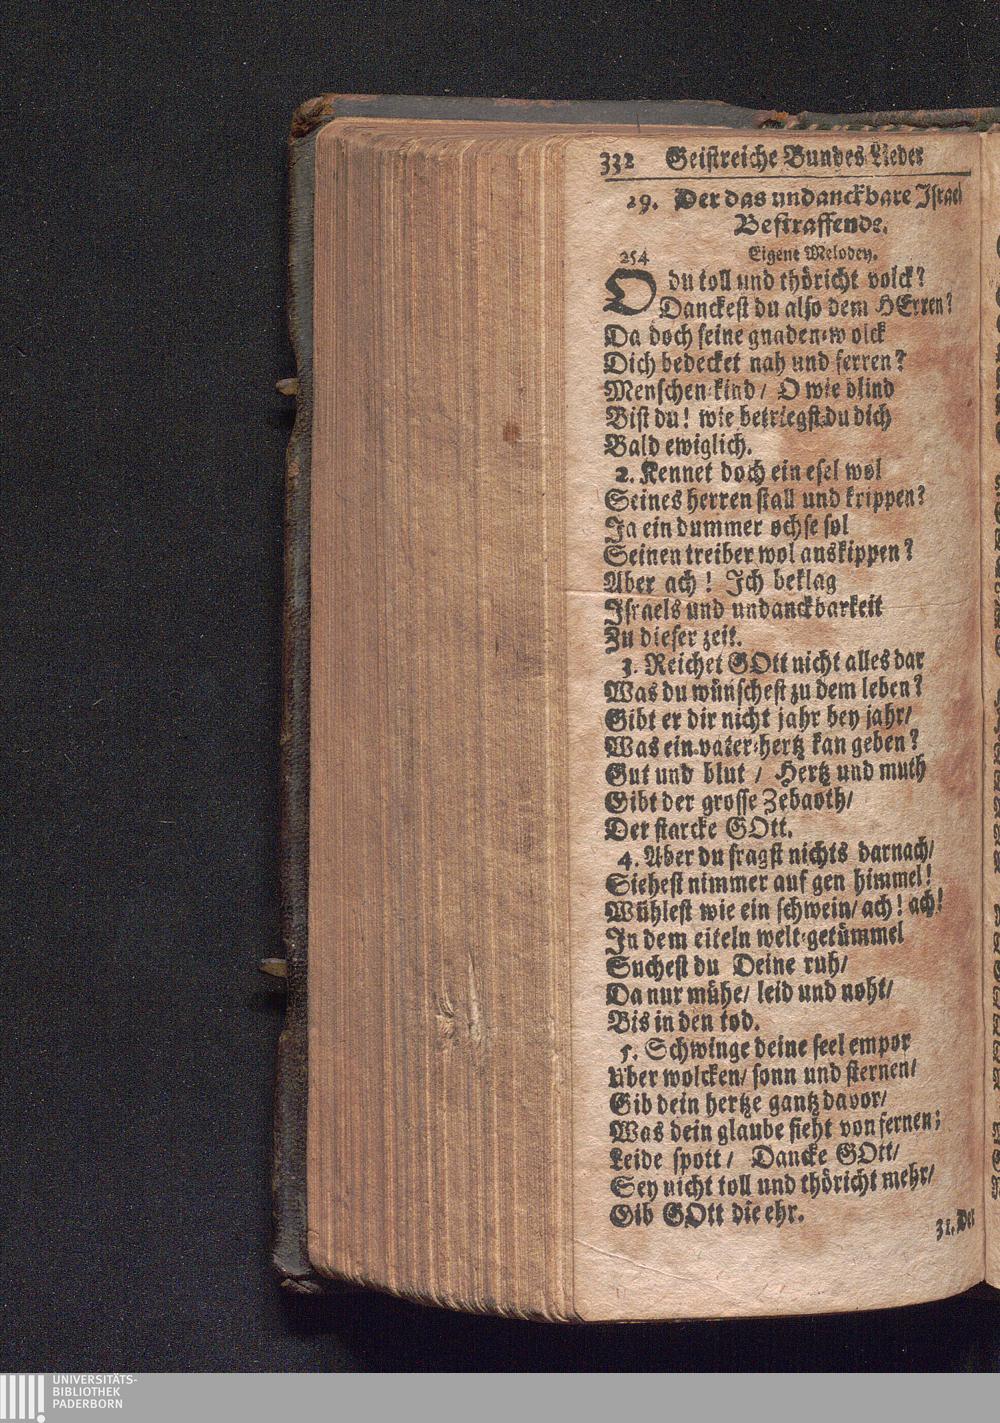 332 Geistreiche Bundes Lieder
29. Der das undanckbare Israel
Bestraffende.
254 Eigene Melodey.
O du toll und thöricht volck?
Danckest du also dem HErren?
Da doch seine gnaden-wolck
Dich bedecket nah und ferren?
Menschen-kind / O wie blind
Bist du! wie betriegst du dich
Bald ewiglich.
2. Kennet doch ein esel wol
Seines herren stall und krippen?
Ja ein dummer ochse sol
Seinen treiber wol auskippen?
Aber ach! Ich beklag
Israels und undanckbarkeit
Zu dieser zeit.
3. Reichet GOtt nicht alles dar
Was du wünschest zu dem leben?
Gibt er dir nicht jahr bey jahr/
Was ein vater-hertz kan geben?
Gut und blut / Hertz und muth
Gibt der grosse Zebaoth/
Der starcke GOtt.
4. Aber du fragst nichts darnach/
Siehest nimmer auf gen himmel!
Wühlest wie ein schwein/ ach! ach!
In dem eiteln welt-getümmel
Suchest du Deine ruh/
Da nur mühe/ leid und noht/
Bis in den tod.
5. Schwinge deine seel empor
Uber wolcken/ sonn und sternen/
Gib dein hertze gantz davor/
Was dein glaube sieht von fernen;
Leide spott / Dancke GOtt/
Sey nicht toll und thöricht mehr/
Gib GOtt die ehr.
31. Der
UNIVERSITÄTS-
BIBLIOTHEK
PADERBORN